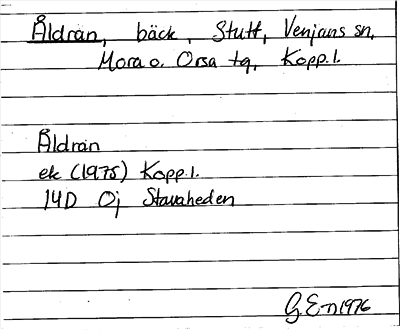 Åldran, bäck, Stutt, Venjans sn,
Mora o. Orsa tg, Kopp. l.
Åldran
ek (1975) Kopp. l.
14D Oj Stavaheden
G E-n 1976